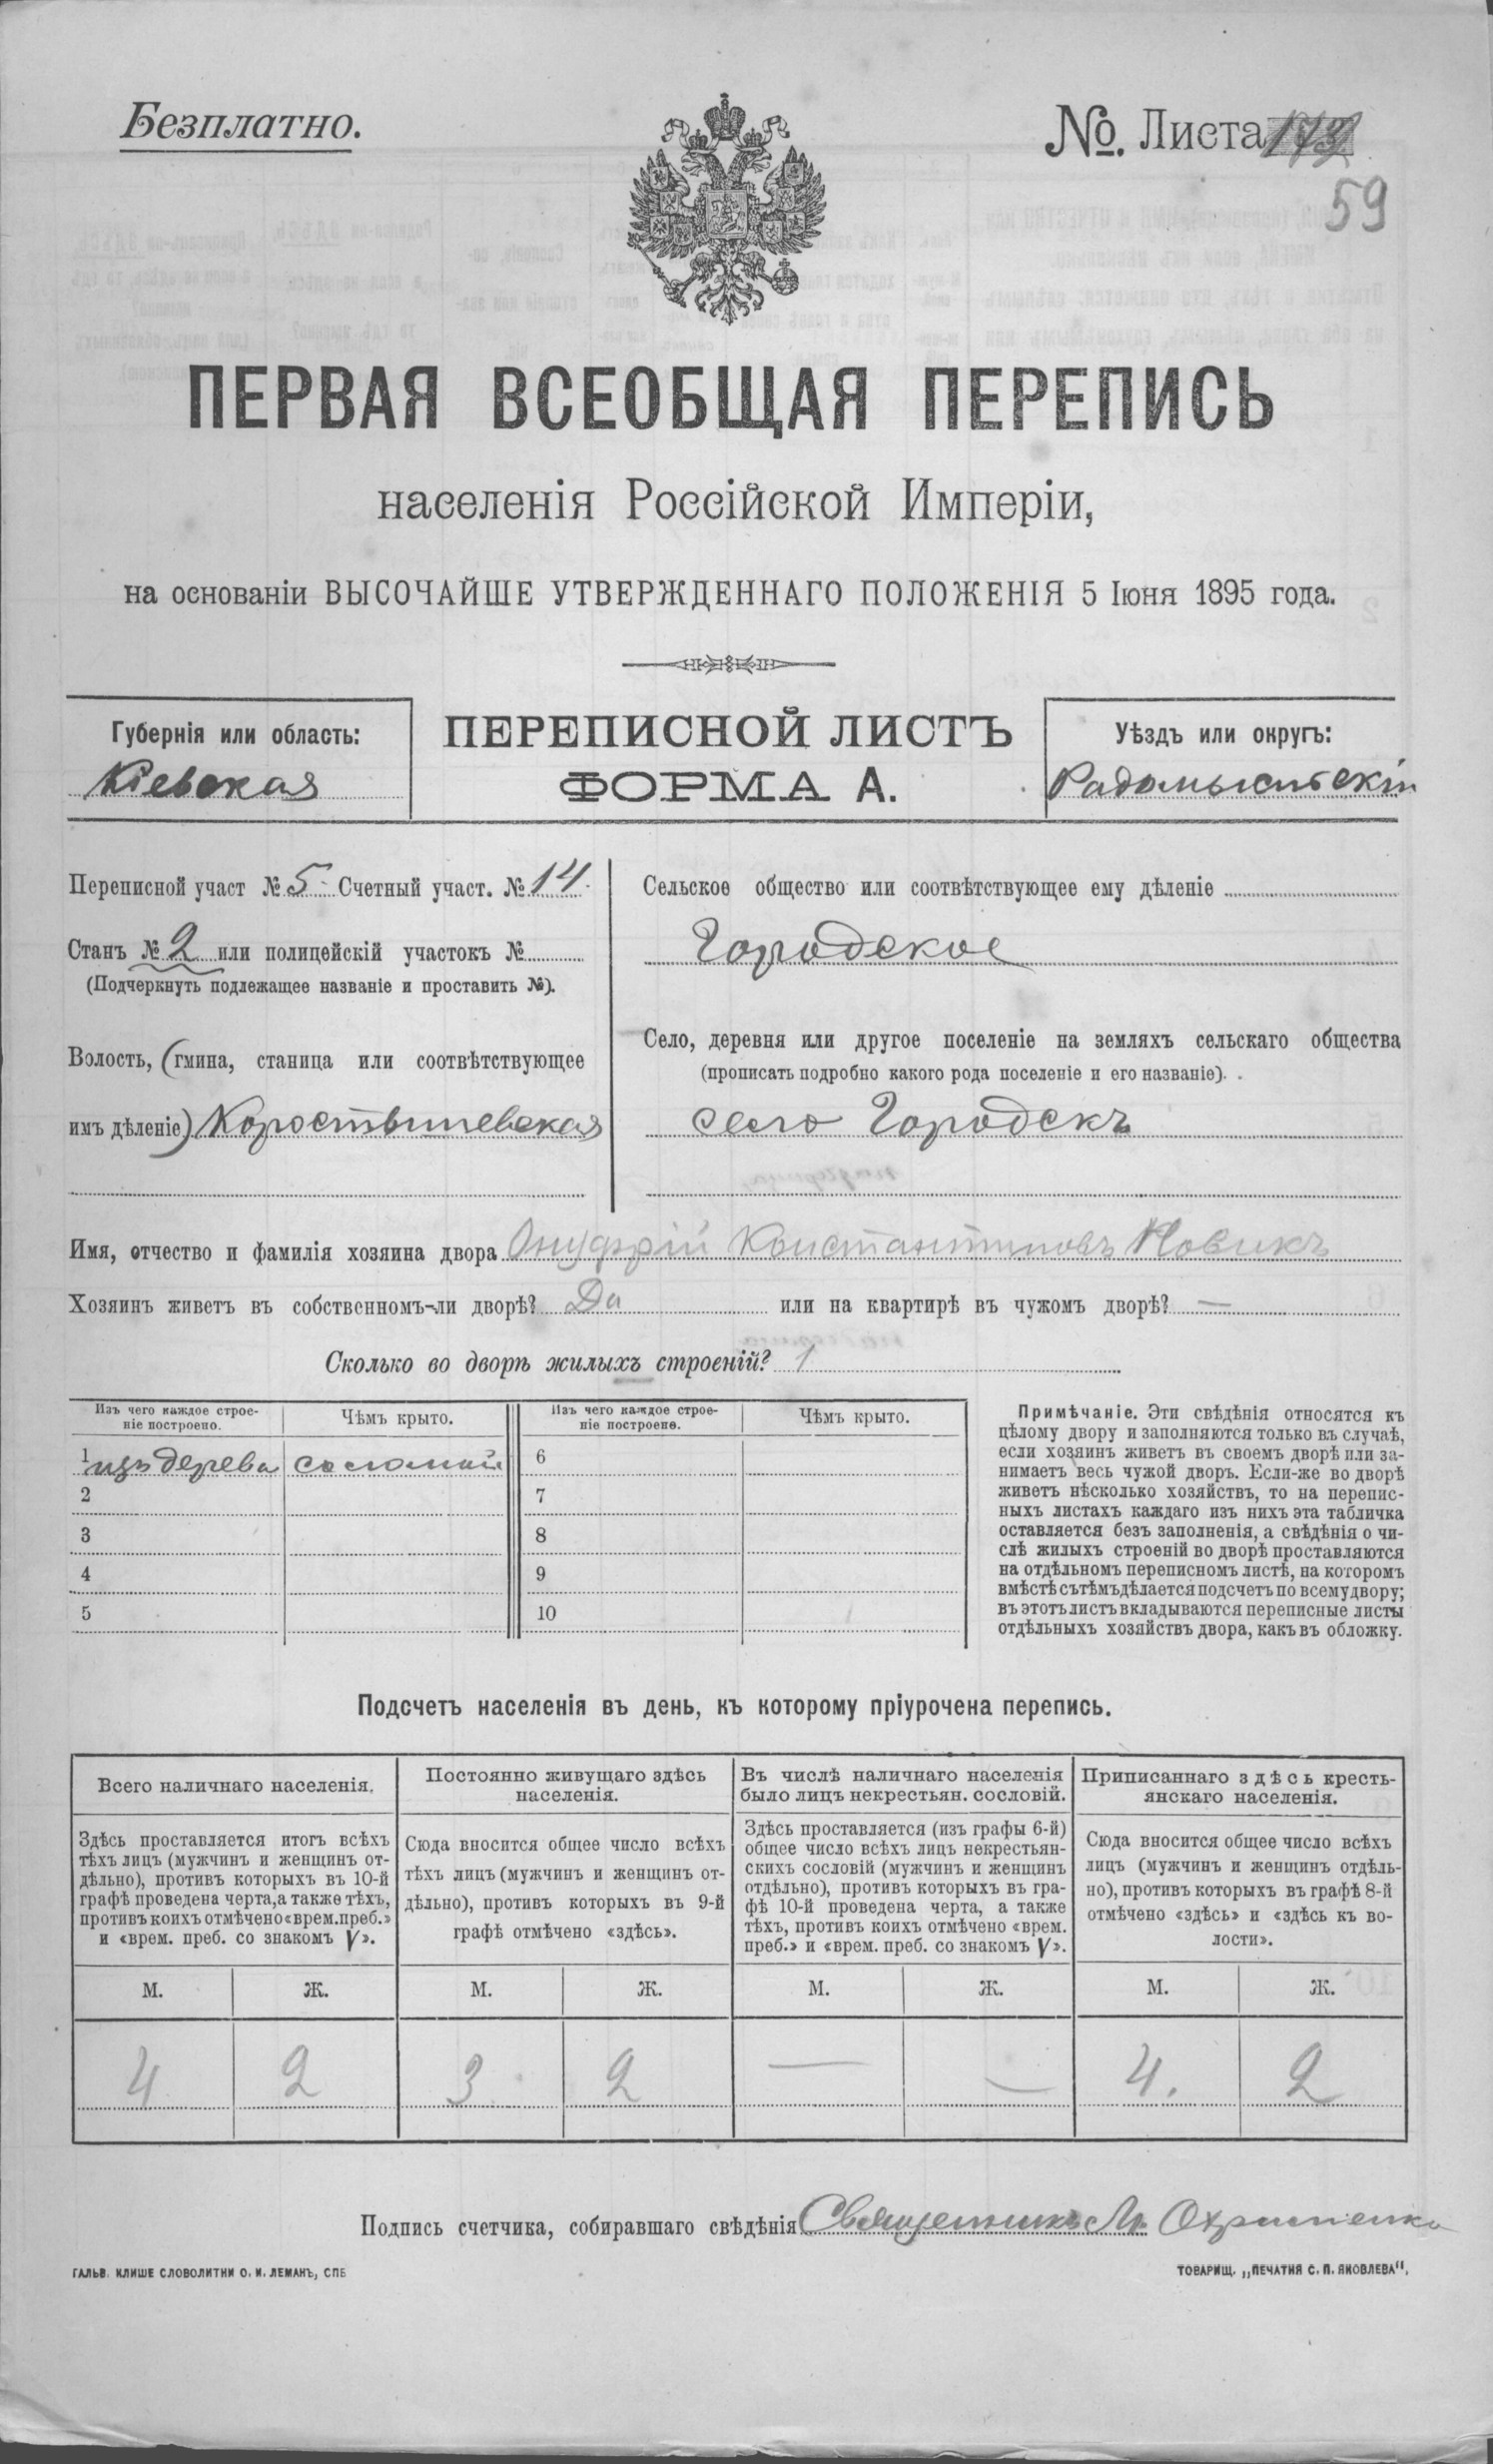 Безплатно.
№. Листа
59
ПЕРВАЯ ВСЕОБЩАЯ ПЕРЕПИСЬ
населенія Россійской Имперіи,
на основаніи ВЫСОЧАЙШЕ УТВЕРЖДЕННАГО ПОЛОЖЕНІЯ 5 Іюня 1895 года.
Губернія или область:
Кіевская
ПЕРЕПИСНОЙ ЛИСТЪ
ФОРМА А.
Уѣздъ или округъ:
Радомысльскій
Переписной участ № 5 Счетный участ. № 14.
Станъ № 2 или полицейскій участокъ №
(Подчеркнуть подлежащее названіе и проставить №).
Волость, (гмина, станица или соотвѣтствующее
имъ дѣленіе) Коростышевская
Сельское общество или соотвѣтствующее ему дѣленіе
Городское
Село, деревня или другое поселеніе на земляхъ сельскаго общества
(прописать подробно какого рода поселеніе и его названіе).
село Городскъ
Имя, отчество и фамилія хозяина двора Онуфрій Константиновъ Новикъ
Хозяинъ живетъ въ собственномъ-ли дворѣ? Да или на квартирѣ въ чужомъ дворѣ? —
Сколько во дворѣ жилыхъ строеній? 1
Изъ чего каждое строе-
ніе построено.
Чѣмъ крыто.
Изъ чего каждое строе-
ніе построено.
Чѣмъ крыто.
1 изъ дерева соломой 6
2 7
3 8
4 9
5 10
Примѣчаніе. Эти свѣдѣнія относятся къ
цѣлому двору и заполняются только въ случаѣ,
если хозяинъ живетъ въ своемъ дворѣ или за-
нимаетъ весь чужой дворъ. Если-же во дворѣ
живетъ нѣсколько хозяйствъ, то на перепис-
ныхъ листахъ каждаго изъ нихъ эта табличка
оставляется безъ заполненія, а свѣдѣнія о чи-
слѣ жилыхъ строеній во дворѣ проставляются
на отдѣльномъ переписномъ листѣ, на которомъ
вмѣстѣ съ тѣмъ дѣлается подсчетъ по всему двору;
въ этотъ листъ вкладываются переписные листы
отдѣльныхъ хозяйствъ двора, какъ въ обложку.
Подсчетъ населенія въ день, къ которому пріурочена перепись.
Всего наличнаго населенія.
Здѣсь проставляется итогъ всѣхъ
тѣхъ лицъ (мужчинъ и женщинъ от-
дѣльно), противъ которыхъ въ 10-й
графѣ проведена черта, а также тѣхъ,
противъ коихъ отмѣчено «врем. преб.»
и «врем. преб. со знакомъ V».
Постоянно живущаго здѣсь
населенія.
Сюда вносится общее число всѣхъ
тѣхъ лицъ (мужчинъ и женщинъ от-
дѣльно), противъ которыхъ въ 9-й
графѣ отмѣчено «здѣсь».
Въ числѣ наличнаго населенія
было лицъ некрестьян. сословій.
Здѣсь проставляется (изъ графы 6-й)
общее число всѣхъ лицъ некрестьян-
скихъ сословій (мужчинъ и женщинъ
отдѣльно), противъ которыхъ въ гра-
фѣ 10-й проведена черта, а также
тѣхъ, противъ коихъ отмѣчено «врем.
преб.» и «врем. преб. со знакомъ V».
Приписаннаго здѣсь кресть-
янскаго населенія.
Сюда вносится общее число всѣхъ
лицъ (мужчинъ и женщинъ отдѣль-
но), противъ которыхъ въ графѣ 8-й
отмѣчено «здѣсь» и «здѣсь къ во-
лости».
М. Ж. М. Ж. М. Ж. М. Ж.
4 2 3 2 — — 4. 2
Подпись счетчика, собиравшаго свѣдѣнія Священникъ М. Охрименко
ГАЛЬВ. КЛИШЕ СЛОВОЛИТНИ О. И. ЛЕМАНЪ, СПБ
ТОВАРИЩ. „ПЕЧАТНЯ С. П. ЯКОВЛЕВА".